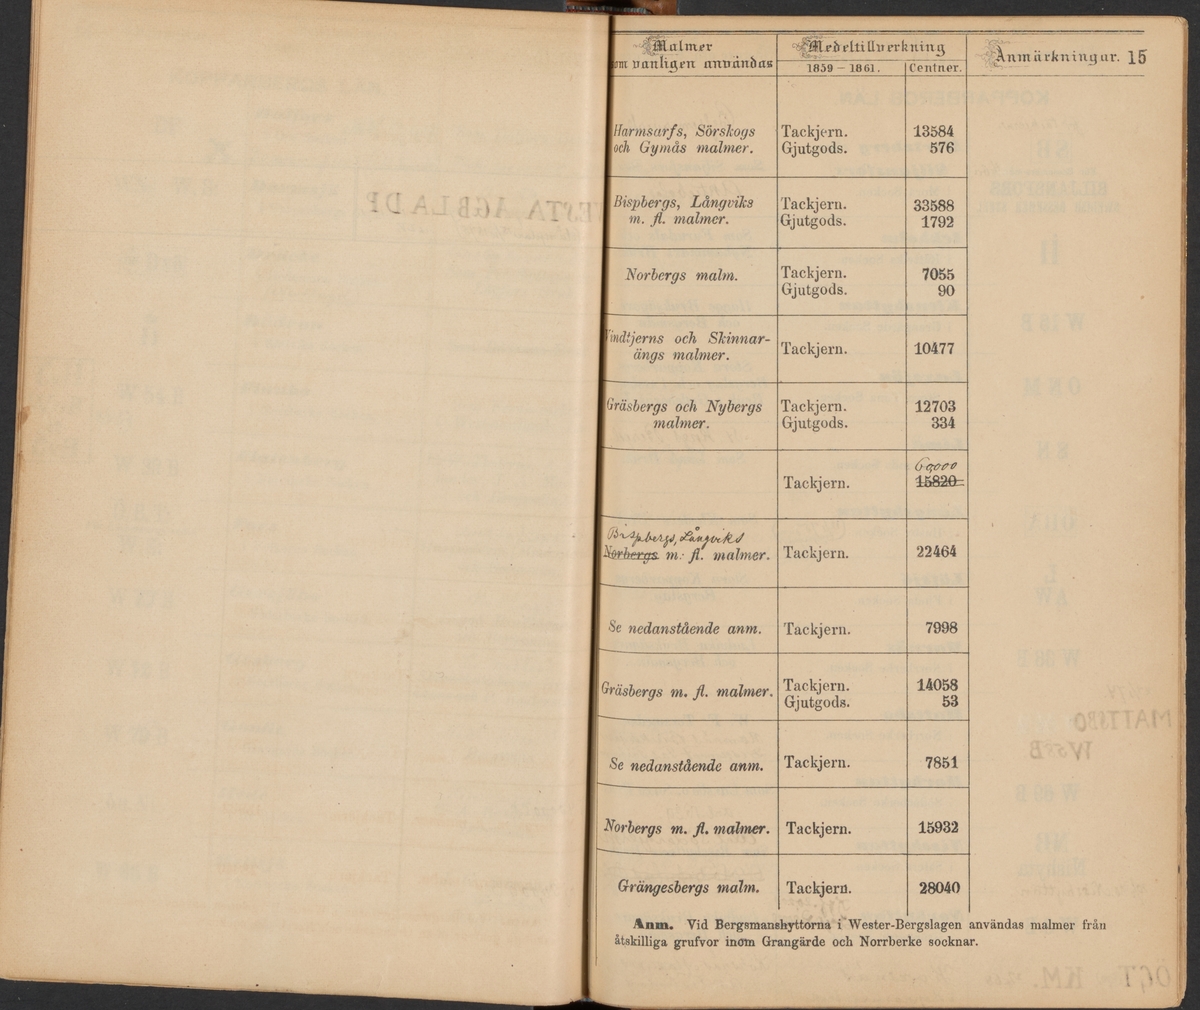 Malmer
om vanligen användas
Medeltillverkning
1859 – 1861.
Centner.
Anmärkningar. 15
Harmsarfs, Sörskogs
och Gymås malmer.
Tackjern. 13584
Gjutgods. 576
Bispbergs, Långviks
m. fl. malmer.
Tackjern. 33588
Gjutgods. 1792
Norbergs malm.
Tackjern. 7055
Gjutgods. 90
Vindtjerns och Skinnar-
ängs malmer.
Tackjern. 10477
Gräsbergs och Nybergs
malmer.
Tackjern. 12703
Gjutgods. 334
60000
Tackjern. 15820
Bispbergs, Långviks
Norbergs m. fl. malmer.
Tackjern. 22464
Se nedanstående anm.
Tackjern. 7998
Gräsbergs m. fl. malmer.
Tackjern. 14058
Gjutgods. 53
Se nedanstående anm.
Tackjern. 7851
Norbergs m. fl. malmer.
Tackjern. 15932
Grängesbergs malm.
Tackjern. 28040
Anm. Vid Bergsmanshyttorna i Wester-Bergslagen användas malmer från
åtskilliga grufvor inom Grangärde och Norrberke socknar.